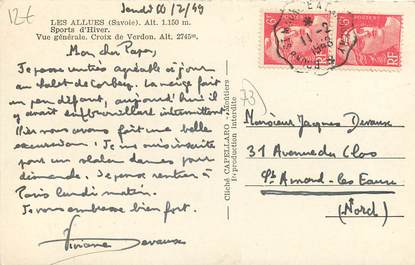 12€
Jeudi 10/2/49
LES ALLUES (Savoie). Alt. 1.150 m.
Sports d'Hiver.
Vue générale. Croix de Verdon. Alt. 2745m.
Mon cher Papa,
Je passe très agréable séjour
au chalet de Corbey. La neige fait
un peu défaut, aujourd'hui il
y avait un brouillard intermittent.
Hier nous avons fait une belle
excursion. Je me suis inscrite
pour un slalom dames pour
dimanche. Je pense rentrer à
Paris lundi matin.
Je vous embrasse bien fort.
Viviane Devaux
Cliché CAPELLARO Moutiers
Reproduction interdite
73
11-2
Monsieur Jacques Devaux
31 Avenue du Clos
St Amand-les-Eaux
(Nord)